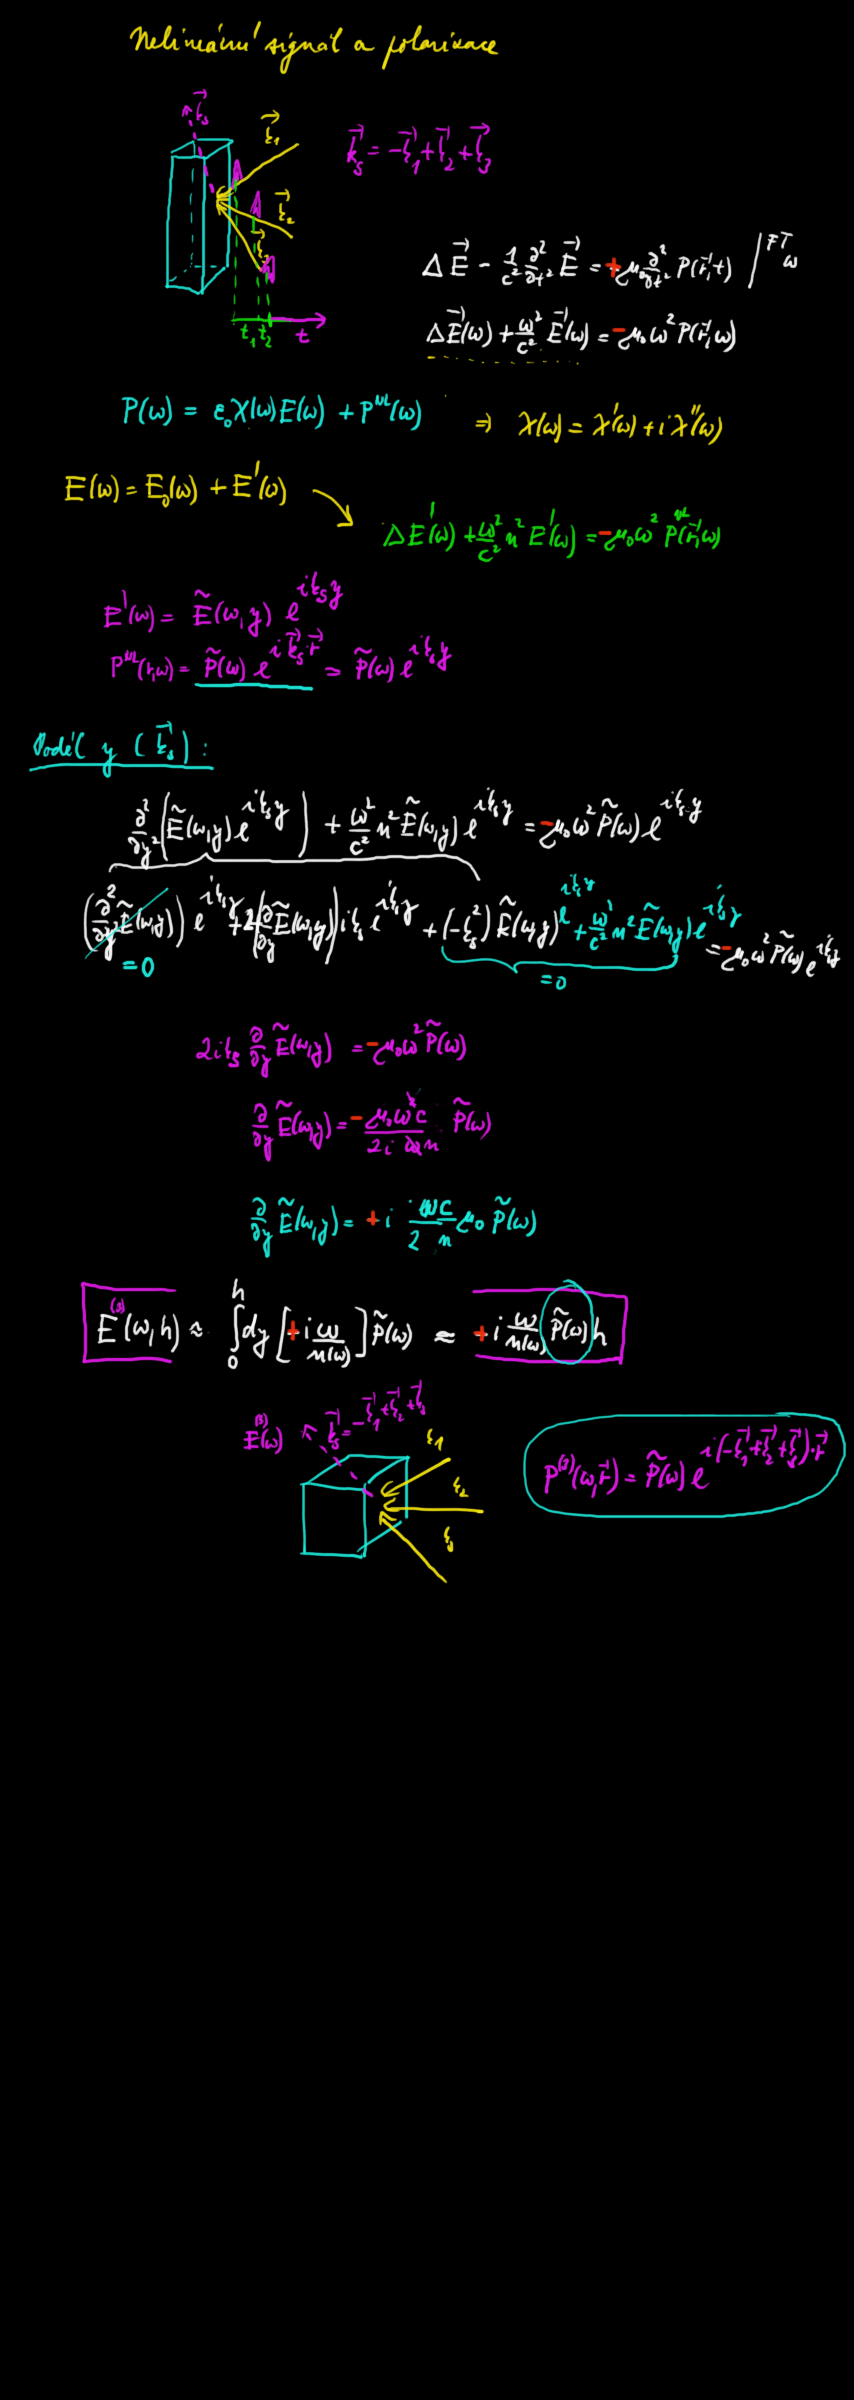 Nelineární signál a polarizace
k⃗s
k⃗1
k⃗2
k⃗3
t1 t2 t
k⃗s = -k⃗1 + k⃗2 + k⃗3
Δ E⃗ - 1/c² ∂²/∂t² E⃗ = + μ0 ∂²/∂t² P(r⃗,t) / FT ω
ΔE⃗(ω) + ω²/c² E⃗(ω) = - μ0 ω² P(r⃗,ω)
P(ω) = ε0 χ(ω) E(ω) + P^NL(ω) ⇒ χ(ω) = χ'(ω) + i χ''(ω)
E(ω) = E0(ω) + E'(ω)
Δ E'(ω) + ω²/c² n² E'(ω) = - μ0 ω² P^NL(r⃗,ω)
E'(ω) = Ẽ(ω,y) e^{i ks y}
P^NL(r,ω) = P̃(ω) e^{i k⃗s·r⃗} = P̃(ω) e^{i ks y}
Podél y (k⃗s) :
∂²/∂y² (Ẽ(ω,y) e^{i ks y}) + ω²/c² n² Ẽ(ω,y) e^{i ks y} = - μ0 ω² P̃(ω) e^{i ks y}
(∂²/∂y² Ẽ(ω,y)) e^{i ks y} + 2(∂/∂y Ẽ(ω,y)) i ks e^{i ks y} + (-ks²) Ẽ(ω,y) e^{i ks y} + ω²/c² n² Ẽ(ω,y) e^{i ks y} = - μ0 ω² P̃(ω) e^{i ks y}
= 0
= 0
2 i ks ∂/∂y Ẽ(ω,y) = - μ0 ω² P̃(ω)
∂/∂y Ẽ(ω,y) = - μ0 ω² c / 2 i ω n P̃(ω)
∂/∂y Ẽ(ω,y) = + i ωc / 2 n μ0 P̃(ω)
E^(3)(ω,h) ≈ ∫0^h dy [+ i ω/n(ω)] P̃(ω) ≈ + i ω/n(ω) P̃(ω) h
E^(3)(ω)
k⃗s = -k⃗1 + k⃗2 + k⃗3
k1
k2
k3
P^(3)(ω,r⃗) = P̃(ω) e^{i(-k⃗1 + k⃗2 + k⃗3)·r⃗}